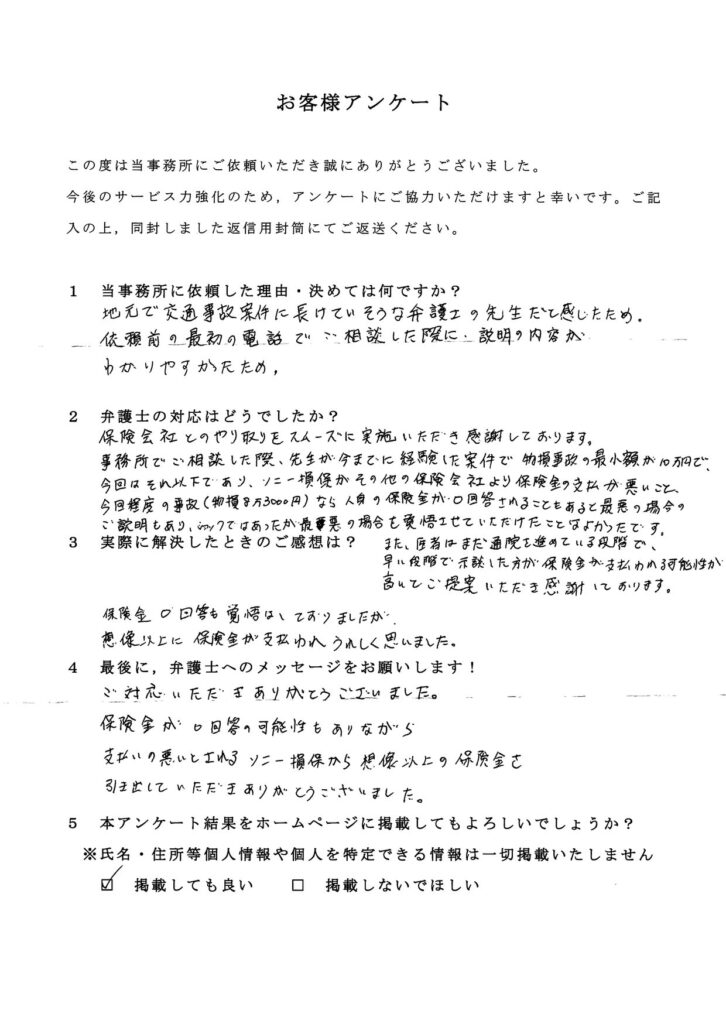 お客様アンケート
この度は当事務所にご依頼いただき誠にありがとうございました。
今後のサービス力強化のため，アンケートにご協力いただけますと幸いです。ご記
入の上，同封しました返信用封筒にてご返送ください。
1 当事務所に依頼した理由・決めては何ですか？
地元で交通事故案件に長けていそうな弁護士の先生だと感じたため．
依頼前の最初の電話でご相談した際に、説明の内容が
わかりやすかたため，
2 弁護士の対応はどうでしたか？
保険会社とのやり取りをスムーズに実施いただき感謝しております。
事務所でご相談した際、先生が今までに経験した案件で物損事故の最小額が10万円で、
今回はそれ以下であり、ソニー損保がその他の保険会社より保険金の支払が悪いこと、
今回程度の事故(物損8万3000円)なら人身の保険金が0回答されることもあると最悪の場合の
ご説明もあり、ショックではあったが最悪の場合も覚悟させていただけたことはよかったです。
また、医者はまだ通院を進めている段階で、
早い段階で示談した方が保険金が支払われる可能性が
高いとご提案いただき感謝しております。
3 実際に解決したときのご感想は？
保険金0回答も覚悟はしておりましたが、
想像以上に保険金が支払われうれしく思いました。
4 最後に，弁護士へのメッセージをお願いします！
ご対応いただきありがとうございました。
保険金が0回答の可能性もありながら
支払いの悪いとされるソニー損保から想像以上の保険金を
引き出していただきありがとうございました。
5 本アンケート結果をホームページに掲載してもよろしいでしょうか？
※氏名・住所等個人情報や個人を特定できる情報は一切掲載いたしません
☑ 掲載しても良い □ 掲載しないでほしい